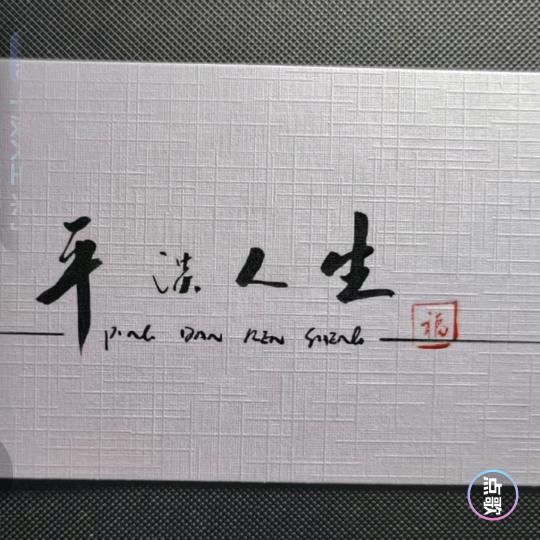 平淡人生
PING DAN REN SHENG
福